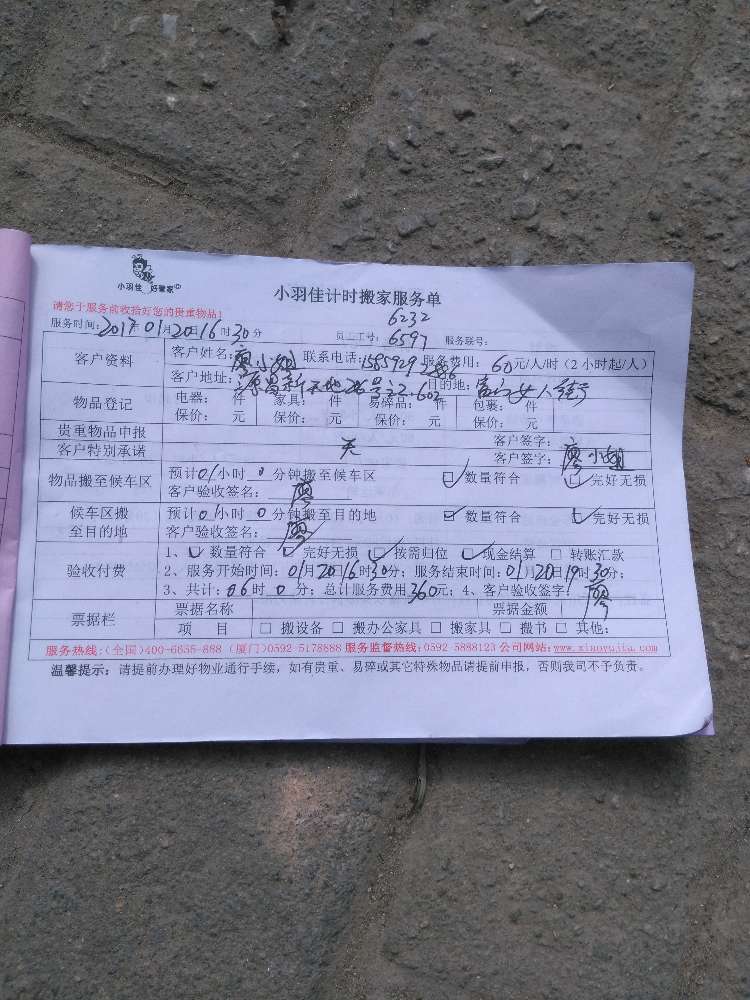 小羽佳 好管家
小羽佳计时搬家服务单
请您于服务前收拾好您的贵重物品!
服务时间: 2017年01月20日16时30分 员工工号: 6232 6597 服务联号:
客户资料 客户姓名: 廖小姐 联系电话: 服务费用: 60元/人/时(2小时起/人)
客户地址: 目的地:
物品登记 电器: 件 家具: 件 易碎品: 件 包裹: 件
保价: 元 保价: 元 保价: 元 保价: 元
贵重物品申报 无 客户签字:
客户特别承诺 客户签字: 廖小姐
物品搬至候车区 预计01小时0分钟搬至候车区 ☑数量符合 ☑完好无损
客户验收签名: 廖
候车区搬至目的地 预计01小时0分钟搬至目的地 ☑数量符合 ☑完好无损
客户验收签名: 廖
验收付费 1、☑数量符合 ☑完好无损 ☑按需归位 ☑现金结算 □转账汇款
2、服务开始时间: 01月20日16时30分; 服务结束时间: 01月20日19时30分;
3、共计: 06时0分; 总计服务费用360元; 4、客户验收签字: 廖
票据栏 票据名称 票据金额
项 目 □搬设备 □搬办公家具 □搬家具 □搬书 □其他:
服务热线:(全国)400-6635-888 (厦门)0592-5178888 服务监督热线:0592-5888123 公司网站:www.xiaoyujia.com
温馨提示: 请提前办理好物业通行手续, 如有贵重、易碎或其它特殊物品请提前申报, 否则我司不予负责。